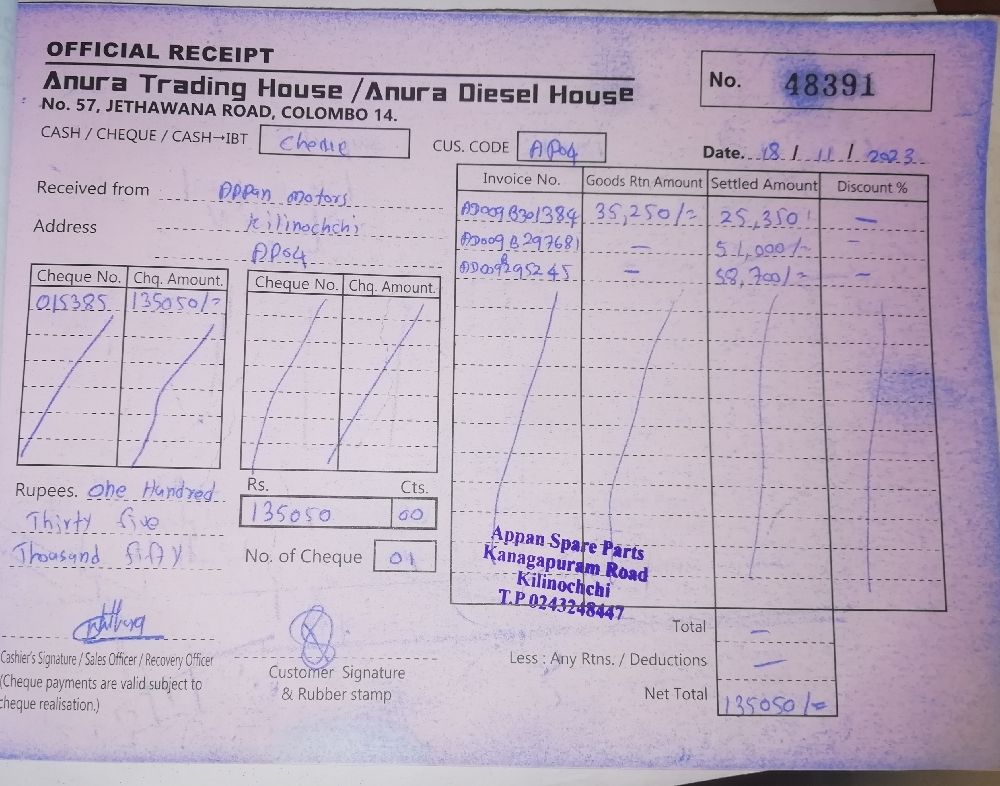 OFFICIAL RECEIPT
Anura Trading House / Anura Diesel House
No. 57, JETHAWANA ROAD, COLOMBO 14.
No. 48391
CASH / CHEQUE / CASH→IBT Cheque
CUS. CODE AP04
Date. 18 / 11 / 2023
Received from Appan Motors
Address Kilinochchi
AP04
Invoice No. Goods Rtn Amount Settled Amount Discount %
AD009B301384 35,250/= 25,350/ —
AD009B297681 — 51,000/= —
AD009B295245 — 58,700/= —
Cheque No. Chq. Amount. Cheque No. Chq. Amount.
015385 135050/=
Rupees. One Hundred
Thirty five
Thousand fifty
Rs. Cts.
135050 00
No. of Cheque 01
Appan Spare Parts
Kanagapuram Road
Kilinochchi
T.P 0243248447
Total —
Less : Any Rtns. / Deductions —
Net Total 135050/=
Cashier's Signature / Sales Officer / Recovery Officer
(Cheque payments are valid subject to
cheque realisation.)
Customer Signature
& Rubber stamp